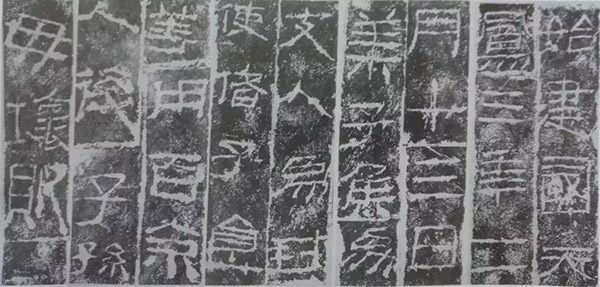 始建國天
鳳三年二
月十三日
萊子侯為
支人為封
使偖子食
等用百余
人後子孫
毋壞敗